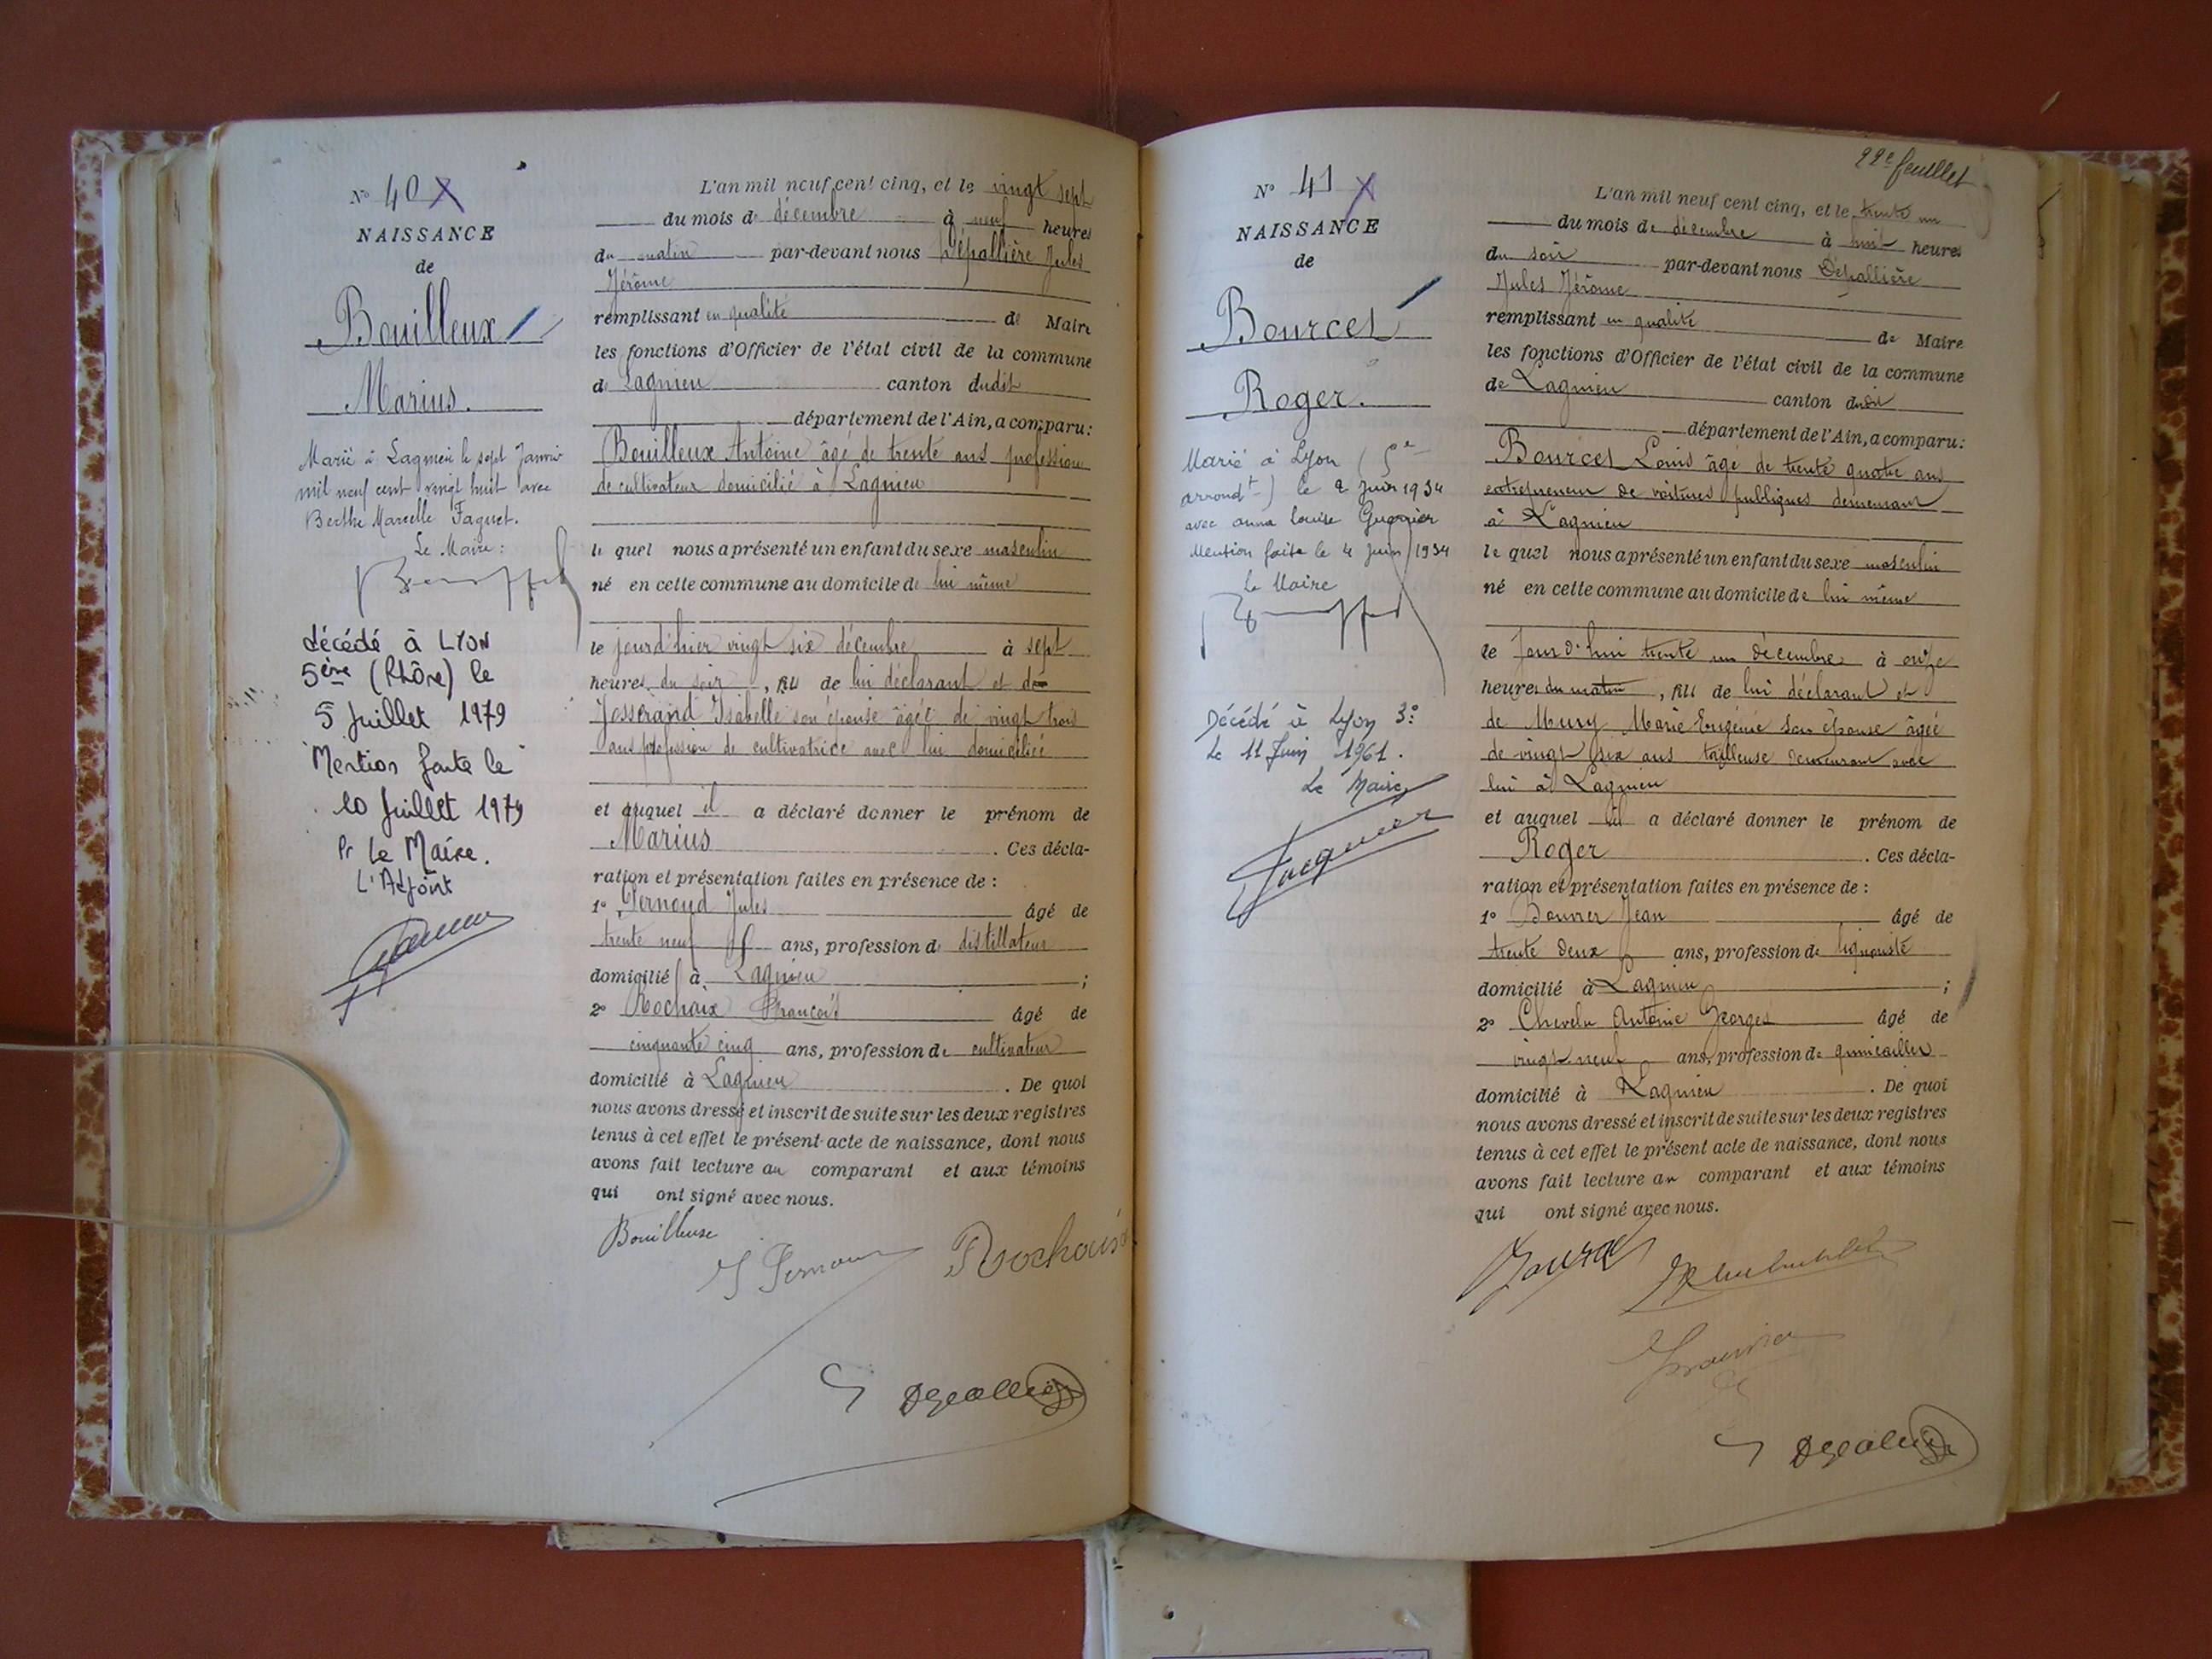 N° 40 X
NAISSANCE
de
Bouilleux
Marius.
Marié à Lagnieu le sept Janvier
mil neuf cent vingt huit avec
Berthe Marcelle Faguet.
Le Maire :
décédé à LYON
5ème (Rhône) le
5 Juillet 1979
Mention faite le
10 Juillet 1979
Pr Le Maire.
L'Adjoint
L'an mil neuf cent cinq, et le vingt sept
du mois de décembre à neuf heures
du matin par-devant nous Dépallière Jules
Jérôme
remplissant en qualité de Maire
les fonctions d'Officier de l'état civil de la commune
de Lagnieu canton dudit
département de l'Ain, a comparu :
Bouilleux Antoine âgé de trente ans profession
de cultivateur domicilié à Lagnieu
lequel nous a présenté un enfant du sexe masculin
né en cette commune au domicile de lui même
le jourd'hier vingt six décembre à sept
heures du soir, fils de lui déclarant et de
Josserand Isabelle son épouse âgée de vingt trois
ans profession de cultivatrice avec lui domiciliée
et auquel il a déclaré donner le prénom de
Marius. Ces décla-
ration et présentation faites en présence de :
1° Pernoud Jules âgé de
trente neuf ans, profession de distillateur
domicilié à Lagnieu ;
2° Rochaix François âgé de
cinquante cinq ans, profession de cultivateur
domicilié à Lagnieu. De quoi
nous avons dressé et inscrit de suite sur les deux registres
tenus à cet effet le présent acte de naissance, dont nous
avons fait lecture au comparant et aux témoins
qui ont signé avec nous.
Bouilleux
J Pernoud
Rochaix
22e feuillet
N° 41 X
NAISSANCE
de
Bourcet
Roger.
Marié à Lyon (5e
arrondt) le 2 Juin 1934
avec Anna Louise
Mention faite le 4 Juin 1934
Le Maire
Décédé à Lyon 3e
Le 11 Juin 1961.
Le Maire,
L'an mil neuf cent cinq, et le trente un
du mois de décembre à huit heures
du soir par-devant nous Dépallière
Jules Jérôme
remplissant en qualité de Maire
les fonctions d'Officier de l'état civil de la commune
de Lagnieu canton dudit
département de l'Ain, a comparu :
Bourcet Louis âgé de trente quatre ans
entrepreneur de voitures publiques demeurant
à Lagnieu
lequel nous a présenté un enfant du sexe masculin
né en cette commune au domicile de lui même
le jourd'hui trente un décembre à onze
heures du matin, fils de lui déclarant et
de Mury Marie Eugénie son épouse âgée
de vingt six ans tailleuse demeurant avec
lui à Lagnieu
et auquel il a déclaré donner le prénom de
Roger. Ces décla-
ration et présentation faites en présence de :
1° Bouvier Jean âgé de
trente deux ans, profession de liquoriste
domicilié à Lagnieu ;
2° Chevelu Antoine Georges âgé de
vingt neuf ans, profession de quincailler
domicilié à Lagnieu. De quoi
nous avons dressé et inscrit de suite sur les deux registres
tenus à cet effet le présent acte de naissance, dont nous
avons fait lecture au comparant et aux témoins
qui ont signé avec nous.